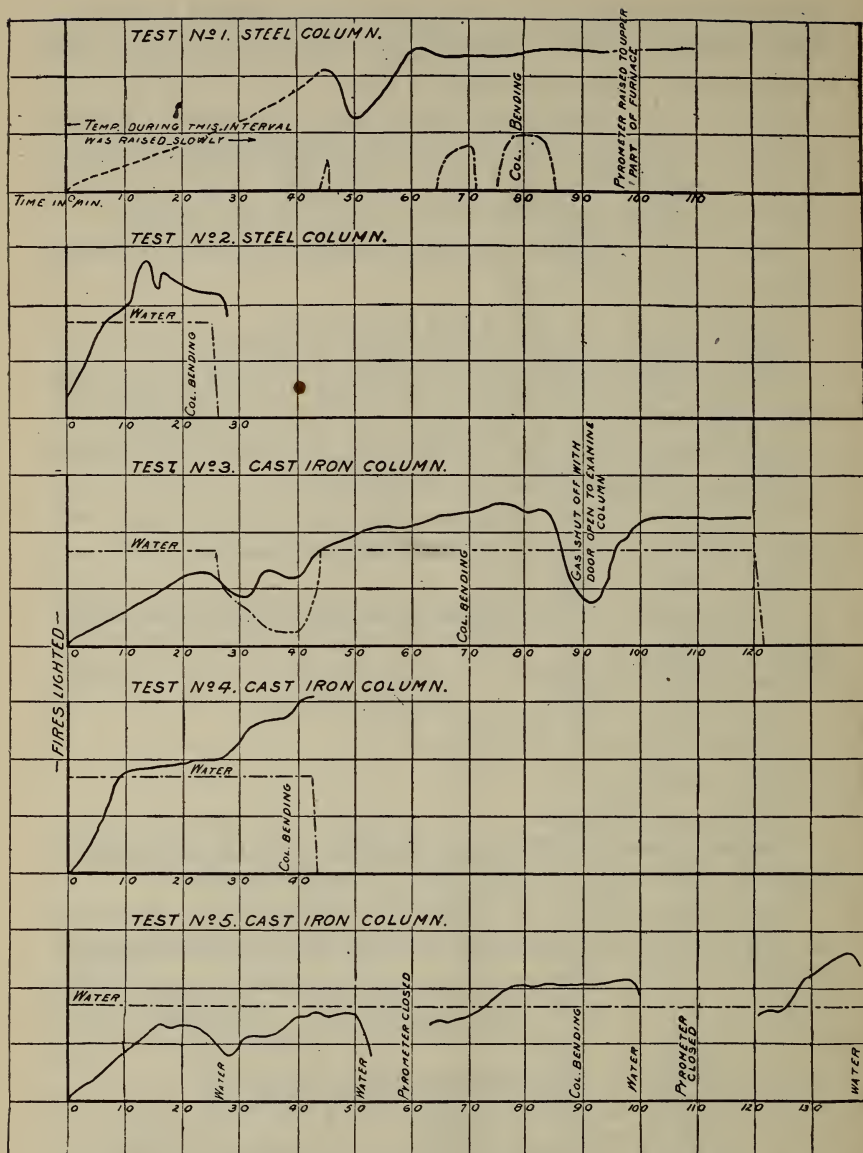 TEST Nº1. STEEL COLUMN.
TEMP. DURING THIS INTERVAL
WAS RAISED SLOWLY
COL. BENDING
PYROMETER RAISED TO UPPER
PART OF FURNACE
TIME IN MIN.
0 10 20 30 40 50 60 70 80 90 100 110
TEST Nº2. STEEL COLUMN.
WATER
COL. BENDING
0 10 20 30
TEST Nº3. CAST IRON COLUMN.
WATER
COL. BENDING
GAS SHUT OFF WITH
DOOR OPEN TO EXAMINE
COLUMN
0 10 20 30 40 50 60 70 80 90 100 110 120
—FIRES LIGHTED—
TEST Nº4. CAST IRON COLUMN.
WATER
COL. BENDING
0 10 20 30 40
TEST Nº5. CAST IRON COLUMN.
WATER
WATER
WATER
PYROMETER CLOSED
COL. BENDING
WATER
PYROMETER
CLOSED
WATER
0 10 20 30 40 50 60 70 80 90 100 110 120 130